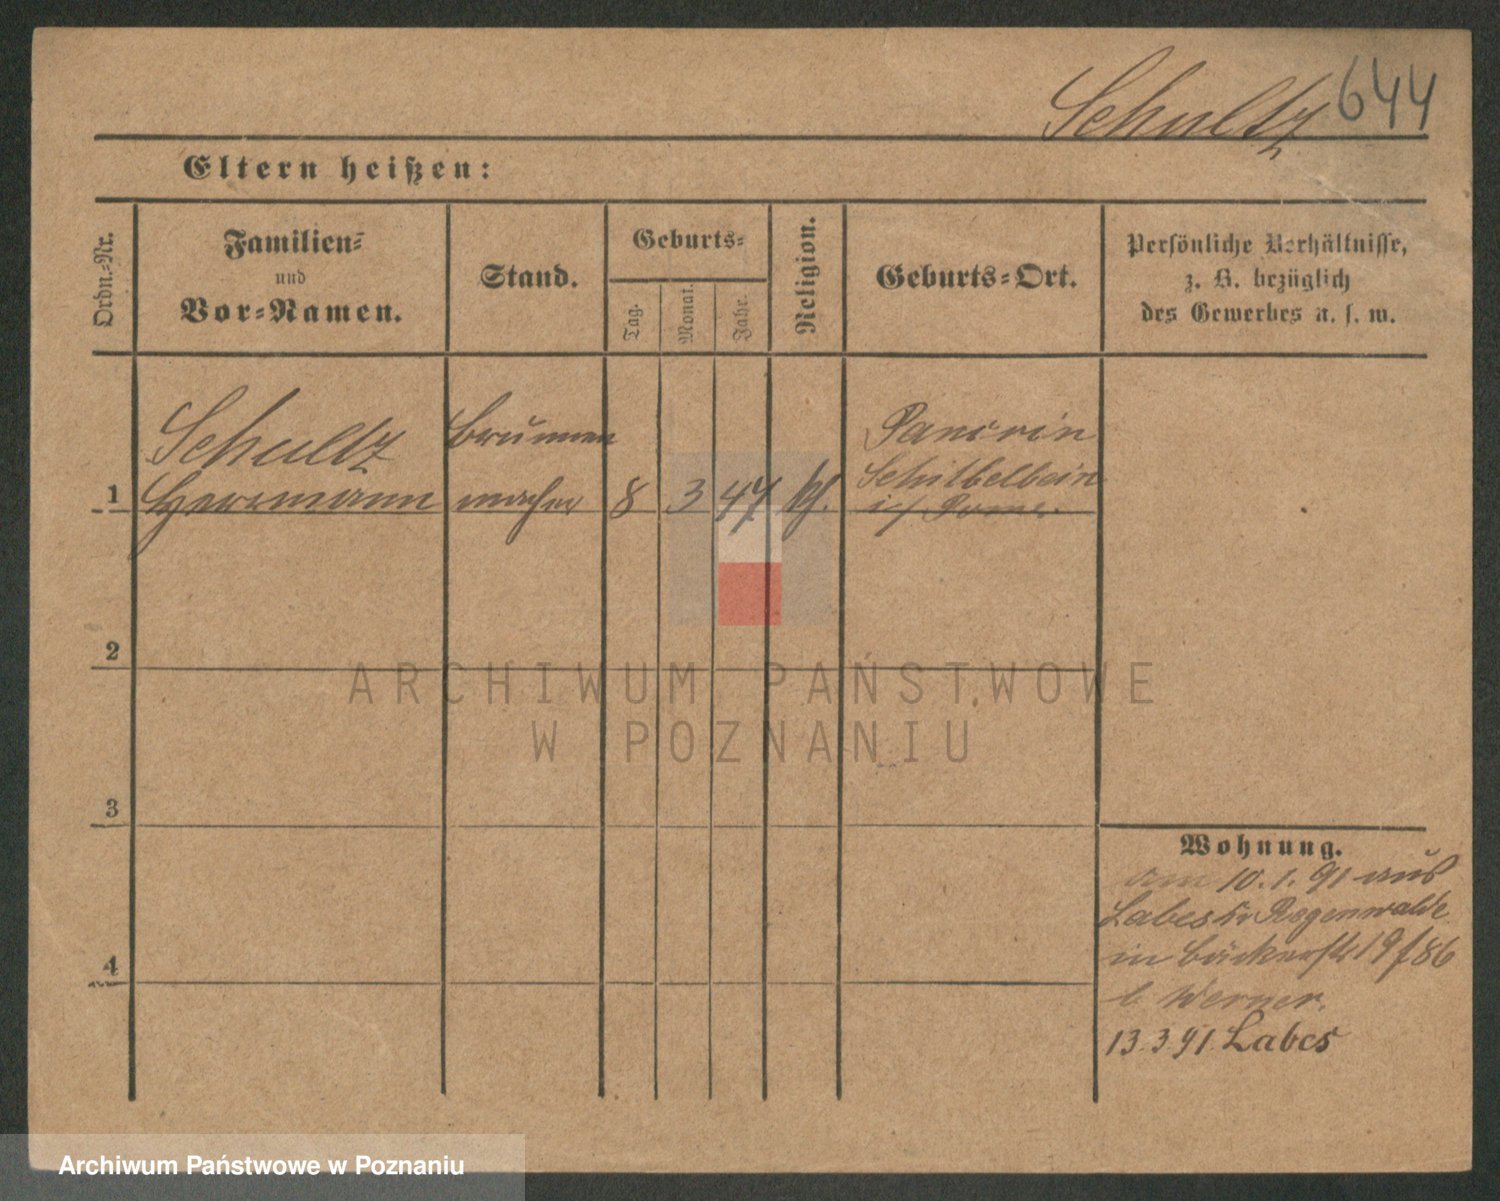 Schultz 644
Eltern heißen:
Ordn.-Nr.
Familien-
und
Vor-Namen.
Stand.
Geburts-
Tag.
Monat.
Jahr.
Religion.
Geburts-Ort.
Persönliche Verhältnisse,
z. B. bezüglich
des Gewerbes u. s. w.
1
Schultz
Herrmann
Brunnen
macher
8
3
47
Schibelbein
i/ Pomr.
2
3
4
Wohnung.
am 10.1.91 aus
Labes Kr Regenwalde
in Bäckerstr 19/86
b Werner.
13.3.91. Labes
ARCHIWUM PAŃSTWOWE
W POZNANIU
Archiwum Państwowe w Poznaniu